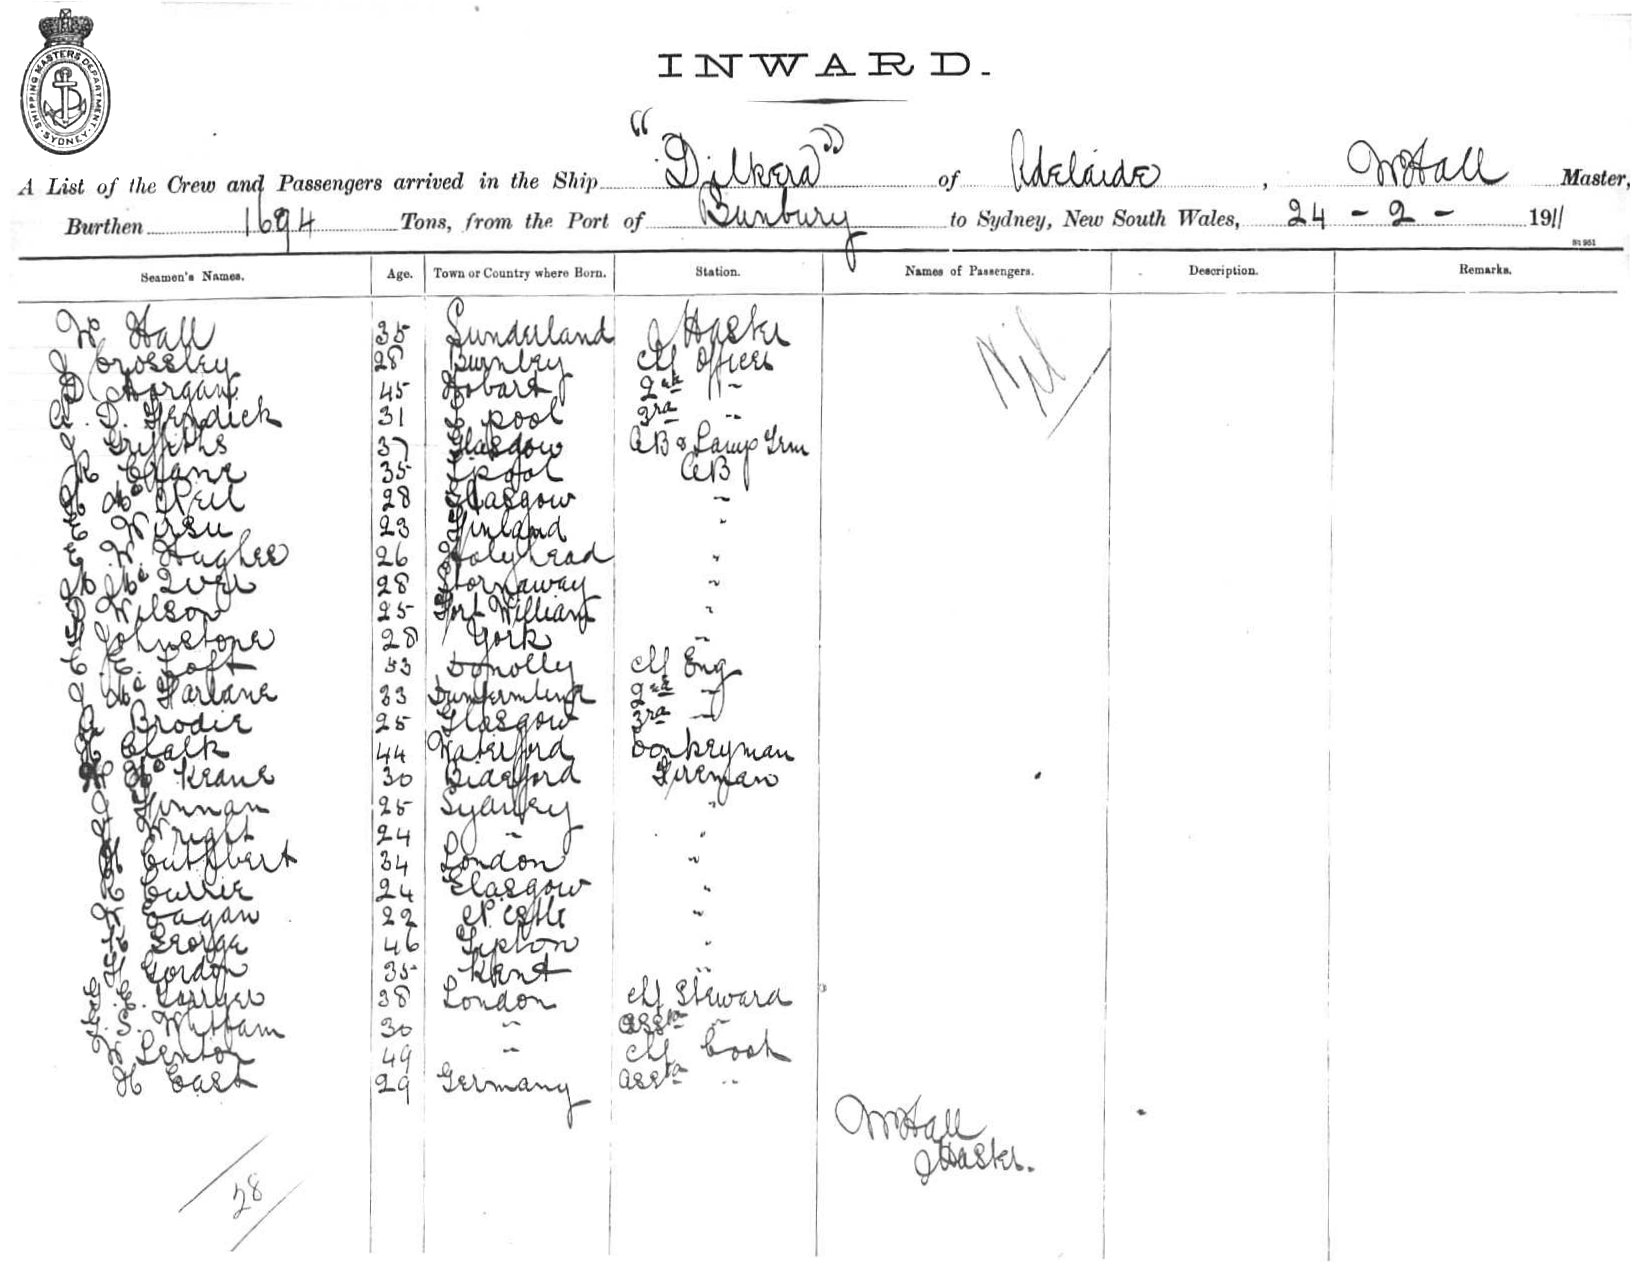 SHIPPING MASTERS DEPARTMENT SYDNEY
INWARD.
A List of the Crew and Passengers arrived in the Ship "Dilkera" of Adelaide, W Hall Master,
Burthen 1694 Tons, from the Port of Bunbury to Sydney, New South Wales, 24 - 2 - 1911
Seamen's Names. Age. Town or Country where Born. Station. Names of Passengers. Description. Remarks.
W Hall 35 Sunderland Master Nil
J Crossley 28 Burnley Chf Officer
D Morgan 45 Hobart 2nd "
D. 31 L'pool 3rd "
J Griffiths 37 Glasgow AB & Lamp Trm
R 35 L'pool AB
McNeil 28 Glasgow "
23 Finland "
W. Hughes 26 Holyhead "
McIver 28 Stornaway "
Wilson 25 Fort William "
Johnstone 28 York "
Loft 53 Chf Eng
McFarlane 33 Dunfermline 2nd "
Brodie 25 Glasgow 3rd "
Chalk 44 Waterford Donkeyman
McKeane 30 Bideford Fireman
25 Sydney "
Wright 24 " "
H Cuthbert 34 London "
Currie 24 Glasgow "
Eagan 22 N'Castle "
George 46 Tipton "
Gordon 35 Kent "
38 London Chf Steward
S. 30 " Asst "
W 49 " Chf Cook
H East 29 Germany Asst "
W Hall
Master.
28